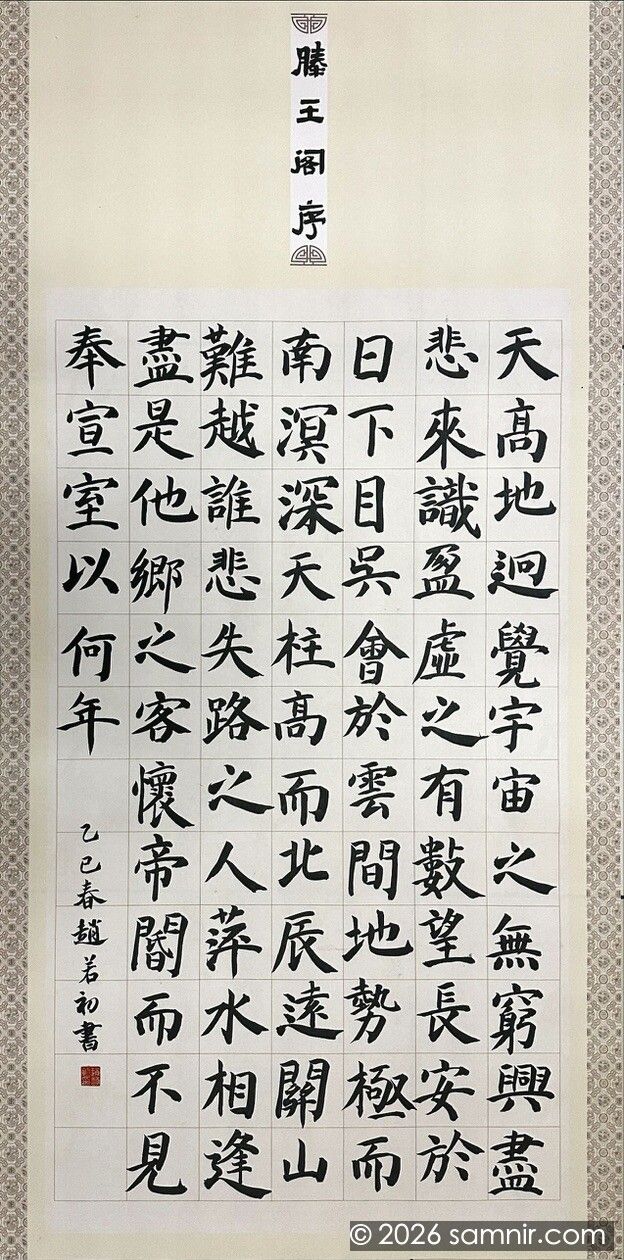 滕王阁序
天高地迥覺宇宙之無窮興盡
悲來識盈虛之有數望長安於
日下目吳會於雲間地勢極而
南溟深天柱高而北辰遠關山
難越誰悲失路之人萍水相逢
盡是他鄉之客懷帝閽而不見
奉宣室以何年
乙巳春趙若初書
© 2026 samnir.com